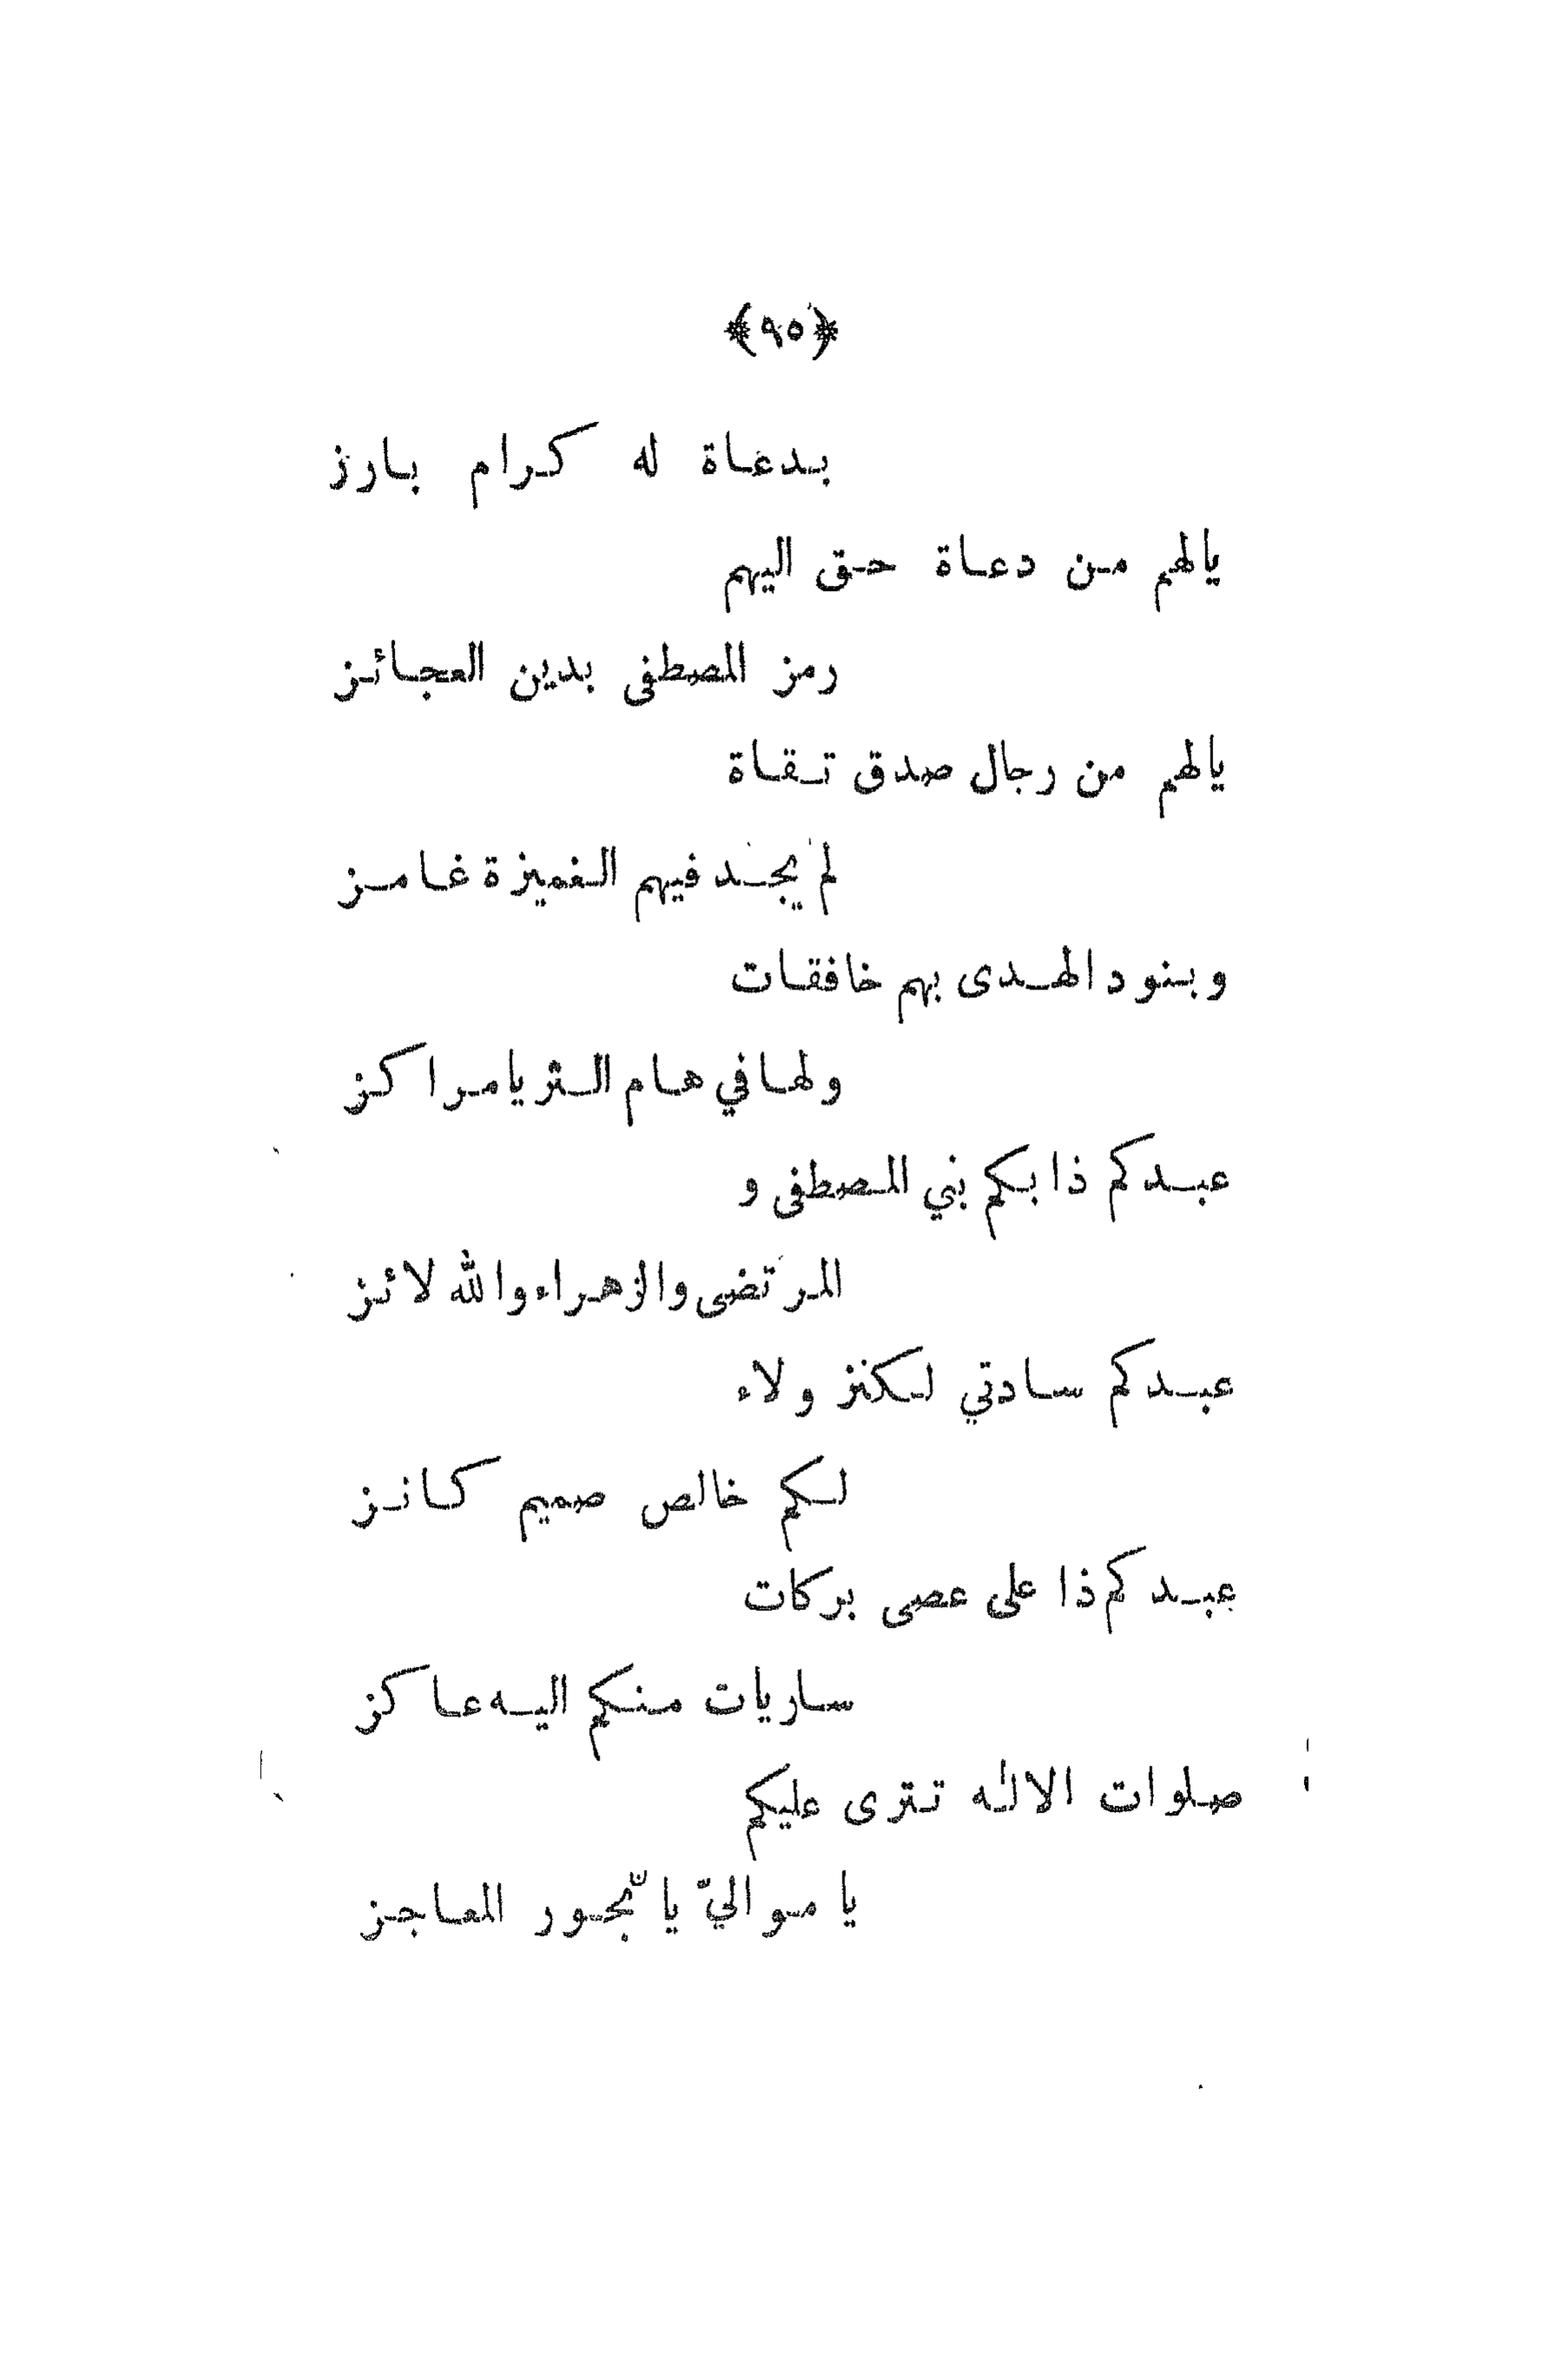 ﴿٩٥﴾
بدعاة له كرام بارز
يالهم من دعاة حق اليهم
رمز المصطفى بدين العجائز
يالهم من رجال صدق تقاة
لم يجد فيهم الغميزة غامز
وبنود الهدى بهم خافقات
ولها في هام الثريا مراكز
عبدكم ذا بكم بني المصطفى و
المرتضى والزهراء والله لائز
عبدكم سادتي لكنز ولاء
لكم خالص صميم كانز
عبدكم ذا على عصى بركات
ساريات منكم اليه عاكز
صلوات الاله تترى عليكم
يا مواليّ يا بحور المعاجز